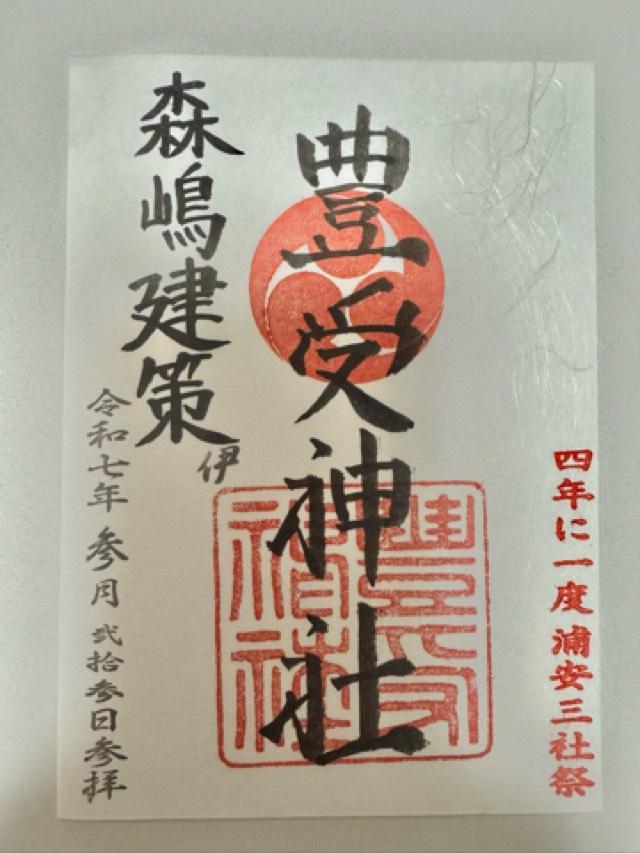 四年に一度浦安三社祭
豊受神社
豊受神社
森嶋建策
伊
令和七年 参月 弐拾参日参拝